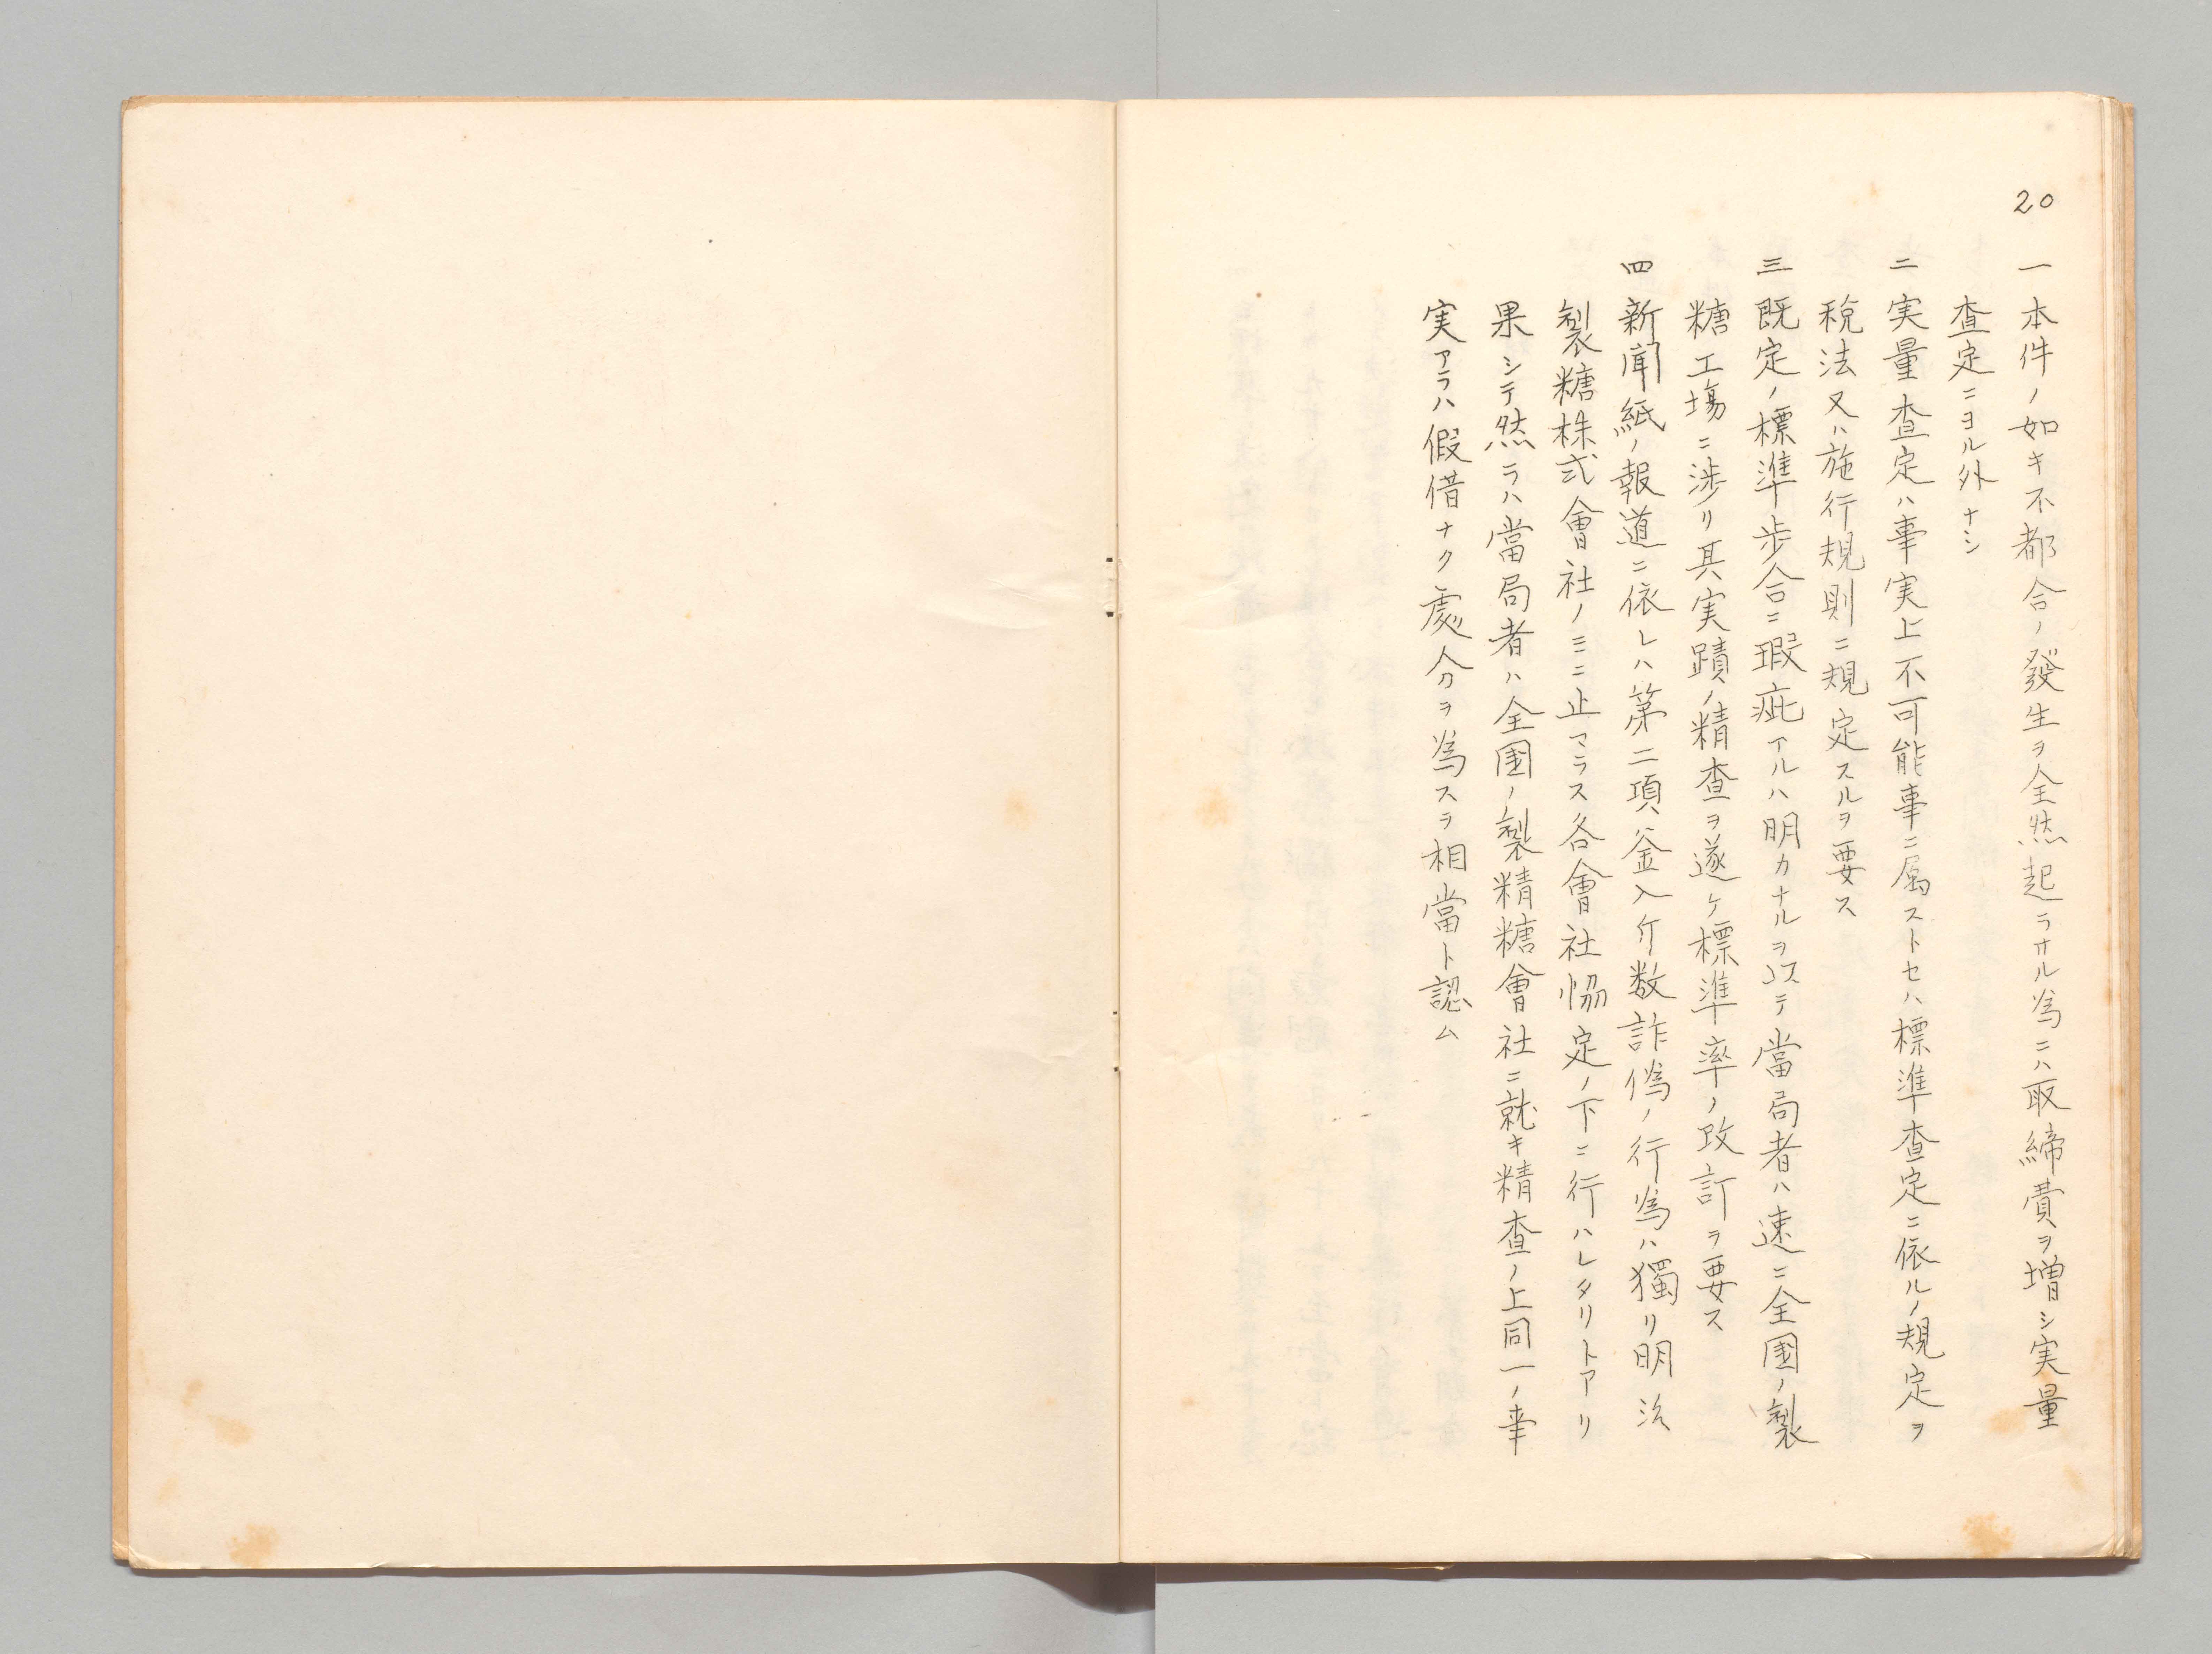 20
一 本件ノ如キ不都合ノ發生ヲ全然起ラサル爲ニハ取締費ヲ増シ実量
査定ニヨル外ナシ
二 実量査定ハ事実上不可能事ニ属ストセハ標準査定ニ依ルノ規定ヲ
税法又ハ施行規則ニ規定スルヲ要ス
三 既定ノ標準歩合ニ瑕疵アルハ明カナルヲ以テ當局者ハ速ニ全國ノ製
糖工場ニ渉リ其実蹟ノ精査ヲ遂ケ標準率ノ改訂ヲ要ス
四 新聞紙ノ報道ニ依レハ第二項釜入斤数詐偽ノ行爲ハ獨リ明治
製糖株式會社ノミニ止マラス各會社協定ノ下ニ行ハレタリトアリ
果シテ然ラハ當局者ハ全國ノ製精糖會社ニ就キ精査ノ上同一ノ事
実アラハ假借ナク處分ヲ爲スヲ相當ト認ム